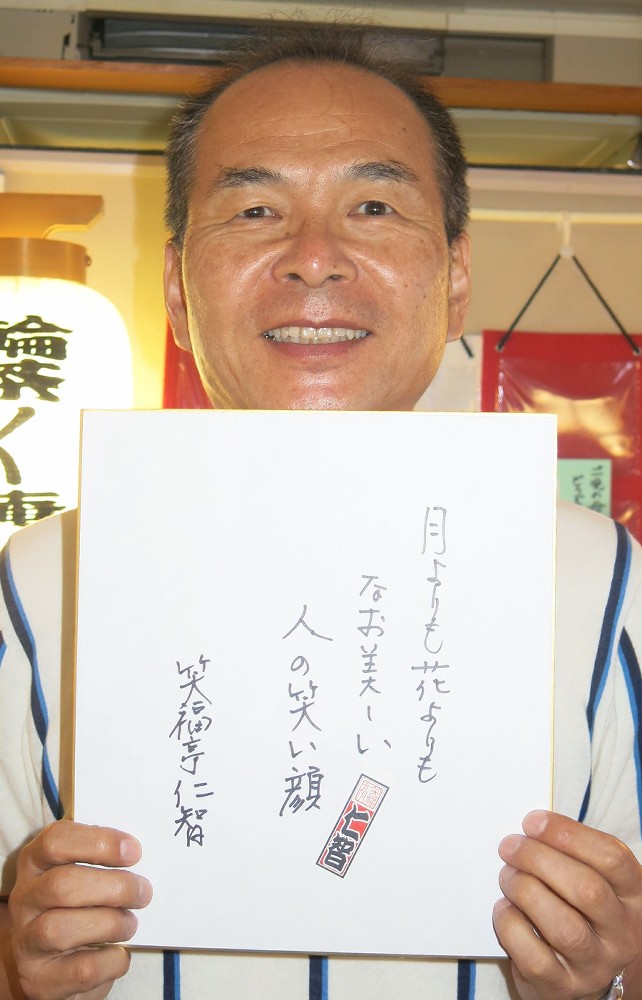 月よりも花よりも
なお美しい
人の笑い顔
笑福亭仁智
仁智